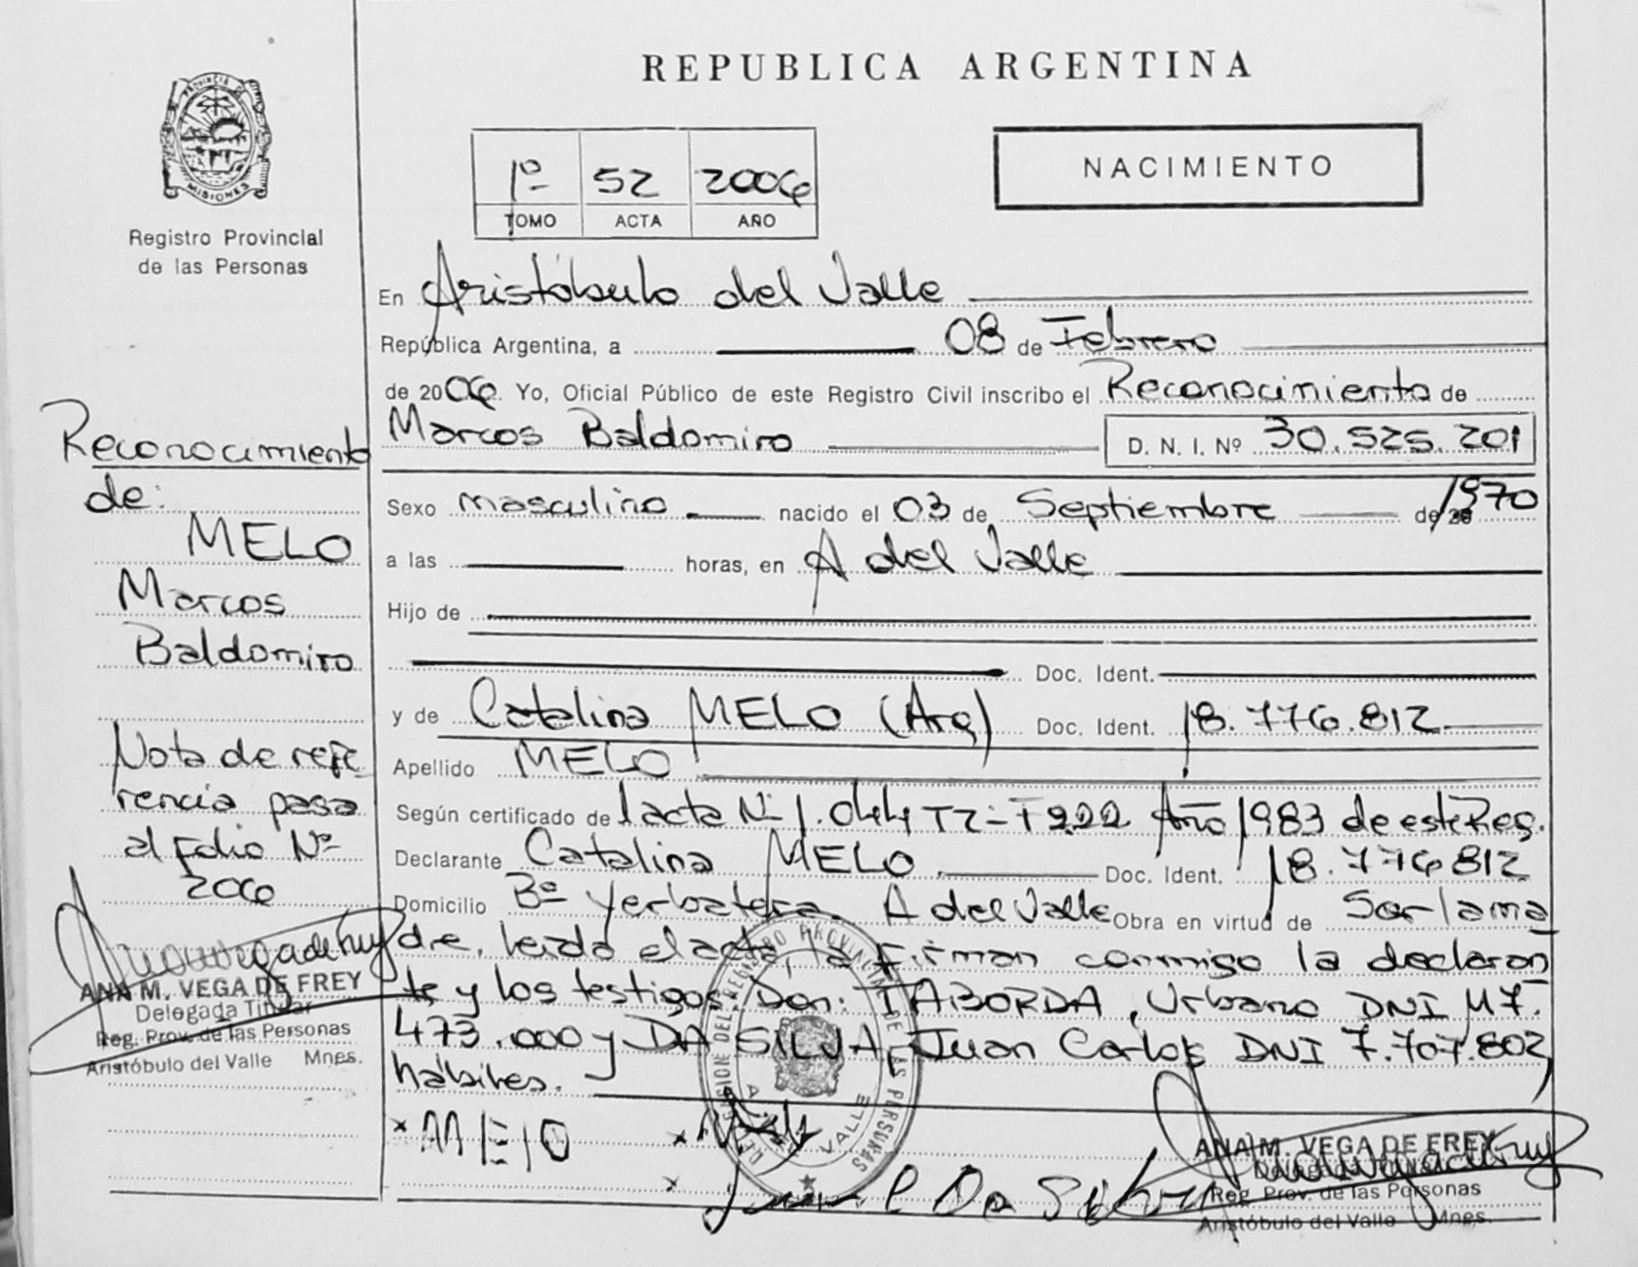 REPUBLICA ARGENTINA
PROVINCIA DE MISIONES
Registro Provincial
de las Personas
1º 52 2006
TOMO ACTA AÑO
NACIMIENTO
En Aristóbulo del Valle
República Argentina, a 08 de Febrero
de 2006. Yo, Oficial Público de este Registro Civil inscribo el Reconocimiento de
Marcos Baldomiro D. N. I. Nº 30.525.201
Sexo masculino nacido el 03 de Septiembre de 1970
a las horas, en A del Valle
Hijo de
Doc. Ident.
y de Catalina MELO (Arg) Doc. Ident. 18.776.812
Apellido MELO
Según certificado de 1 acta Nº 1.044 T2-F222 Año 1983 de este Reg.
Declarante Catalina MELO Doc. Ident. 18.776812
Domicilio Bº Yerbatera. A del Valle Obra en virtud de Ser la ma
dre, leida el acta, la firman conmigo la declaran
te y los testigos Don: TABORDA, Urbano DNI M7.
473.000 y DA SILVA, Juan Carlos DNI 7.707.802,
hábiles.
Reconocimiento
de:
MELO
Marcos
Baldomiro
Nota de refe
rencia pasa
al folio Nº
206
ANA M. VEGA DE FREY
Delegada Titular
Reg. Prov. de las Personas
Aristóbulo del Valle Mnes.
DELEGACION DEL REGISTRO PROVINCIAL DE LAS PERSONAS
VALLE
x MElO
x
x Juan C Da Silva
ANA M. VEGA DE FREY
Delegada Titular
Reg. Prov. de las Personas
Aristóbulo del Valle Mnes.